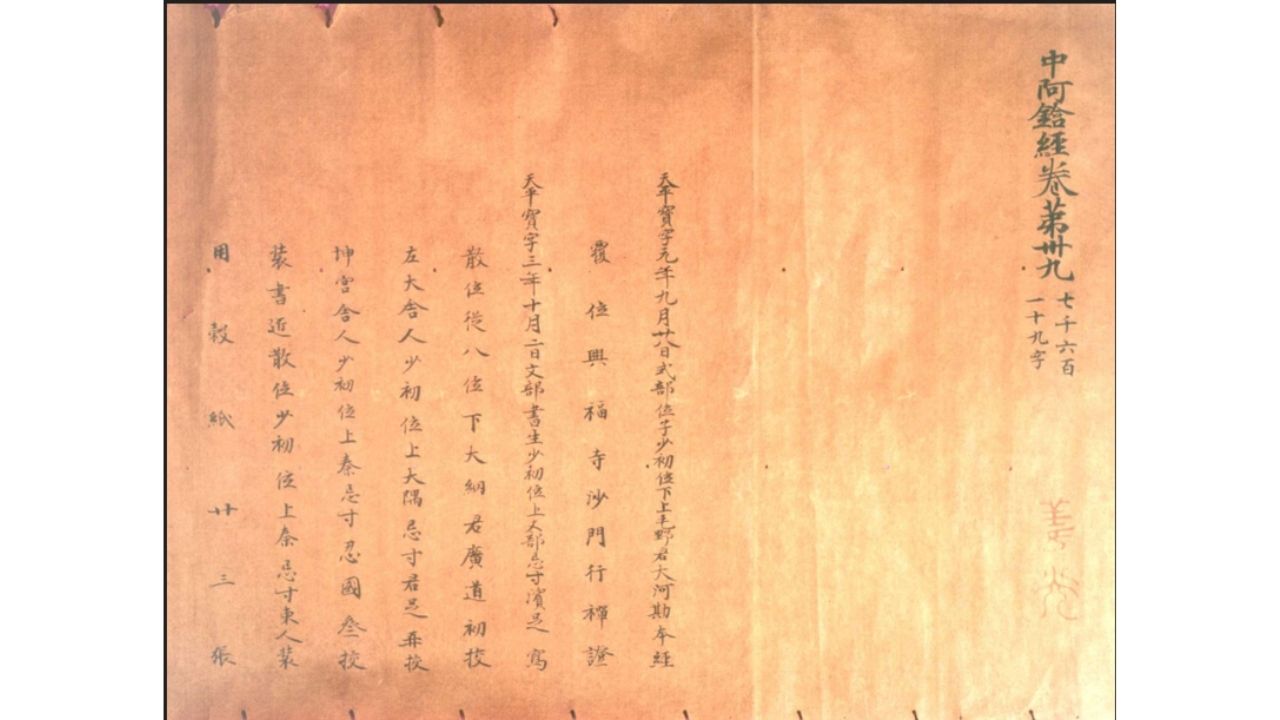 中阿鋡經卷第卌九
七千六百
一十九字
善光
天平寶字元年九月廿八日式部位子少初位下上毛野君大河勘本經
覆位興福寺沙門行禪證
天平寶字三年十月二日文部書生少初位上大部忌寸濱足寫
散位從八位下大網君廣道初挍
左大舍人少初位上大隅忌寸君足再挍
坤宮舍人少初位上秦忌寸忍國叄挍
裝書近散位少初位上秦忌寸東人裝
用穀紙廿三張